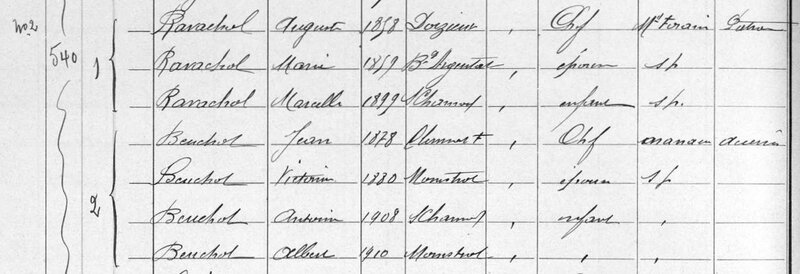 No 2 Ravachol Auguste 1858 Doizieux " Chf Md forain Patron
540 1 Ravachol Marie 1859 Bg Argental " épouse s.p.
Ravachol Marcelle 1899 St Chamond " enfant s.p.
Beuchot Jean 1878 " Chf manœu
2 Beuchot Victorine 1880 Monistrol " épouse s.p.
Beuchot Antoine 1908 St Chamond " enfant "
Beuchot Albert 1910 Monistrol " " "